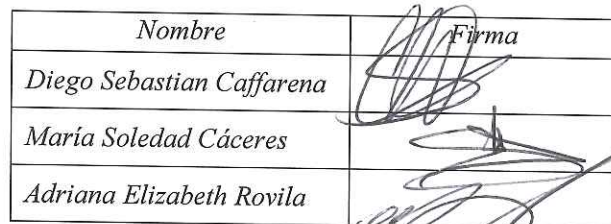 Nombre Firma
Diego Sebastian Caffarena
María Soledad Cáceres
Adriana Elizabeth Rovila